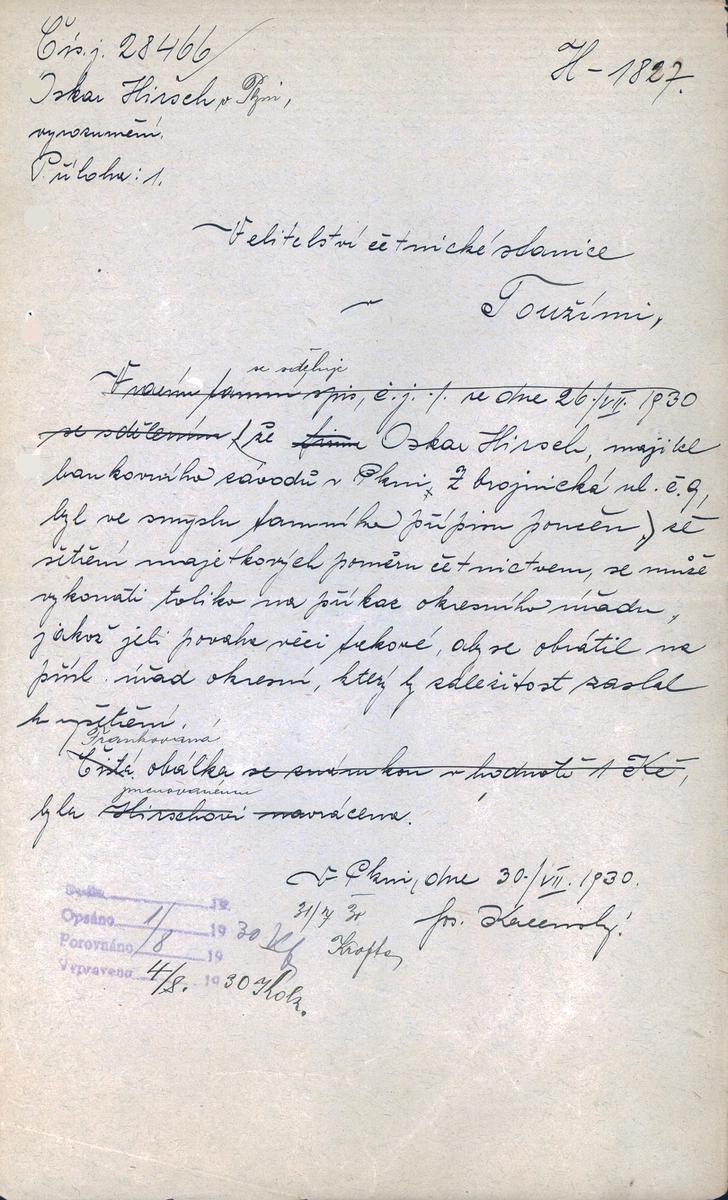 Čís. j. 28466/
H - 1827.
Oskar Hirsch v Plzni,
vyrozumění.
Příloha: 1.
Velitelství četnické stanice
v Toužimi,
se sděluje
Vracím tamní spis, č.j. ./. ze dne 26./VII. 1930
se sdělením, (že firma Oskar Hirsch, majitel
bankovního závodů v Plzni, Zbrojnická ul. č. 9,
byl ve smyslu tamního přípisu poučen,) že
šetření majetkových poměru četnictvem, se může
vykonati toliko na příkaz okresního úřadu,
jakož jeli povaha věci takové, aby se obrátil na
přísl. úřad okresní, který by záležitost zaslal
k vyšetření.
Frankovaná
Čistá obálka se známkou v hodnotě 1 Kč,
jmenovanému
byla Hirschovi navrácena.
V Plzni, dne 30./VII. 1930.
31/7 30
Jos.
Krofta
19
Opsáno 1/ 19 30
Porovnáno /8 19
Vypraveno 4/8. 19 30 Kolz.